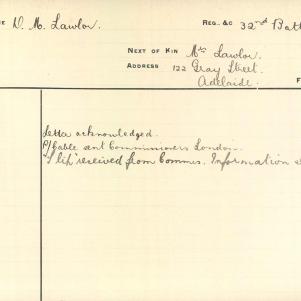 D. M. Lawlor. Reg. &c 32nd Batt
Next of Kin Mrs Lawlor.
Address 122 Gray Street.
Adelaide.
Letter acknowledged.
P/Cable sent Commissioners London.
received from Commrs. Information